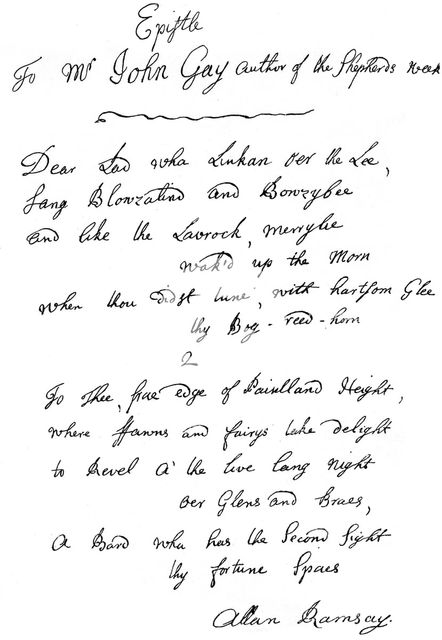 Epistle
To Mr John Gay Author of the Shepherds week
Dear Lad wha Linkan o'er the Lee,
Sang Blowzalind and Bowzybee
and like the Lavrock, merrylie
wak'd up the Morn
when thou didst tune, with hartsom Glee
thy Bog-reed-horn
2
To Thee, frae edge of Pentland Height,
where ffawns and fairys take delight
to Revel a' the live lang night
o'er Glens and Braes,
A Bard wha has the Second Sight
thy fortune Spaes
Allan Ramsay.